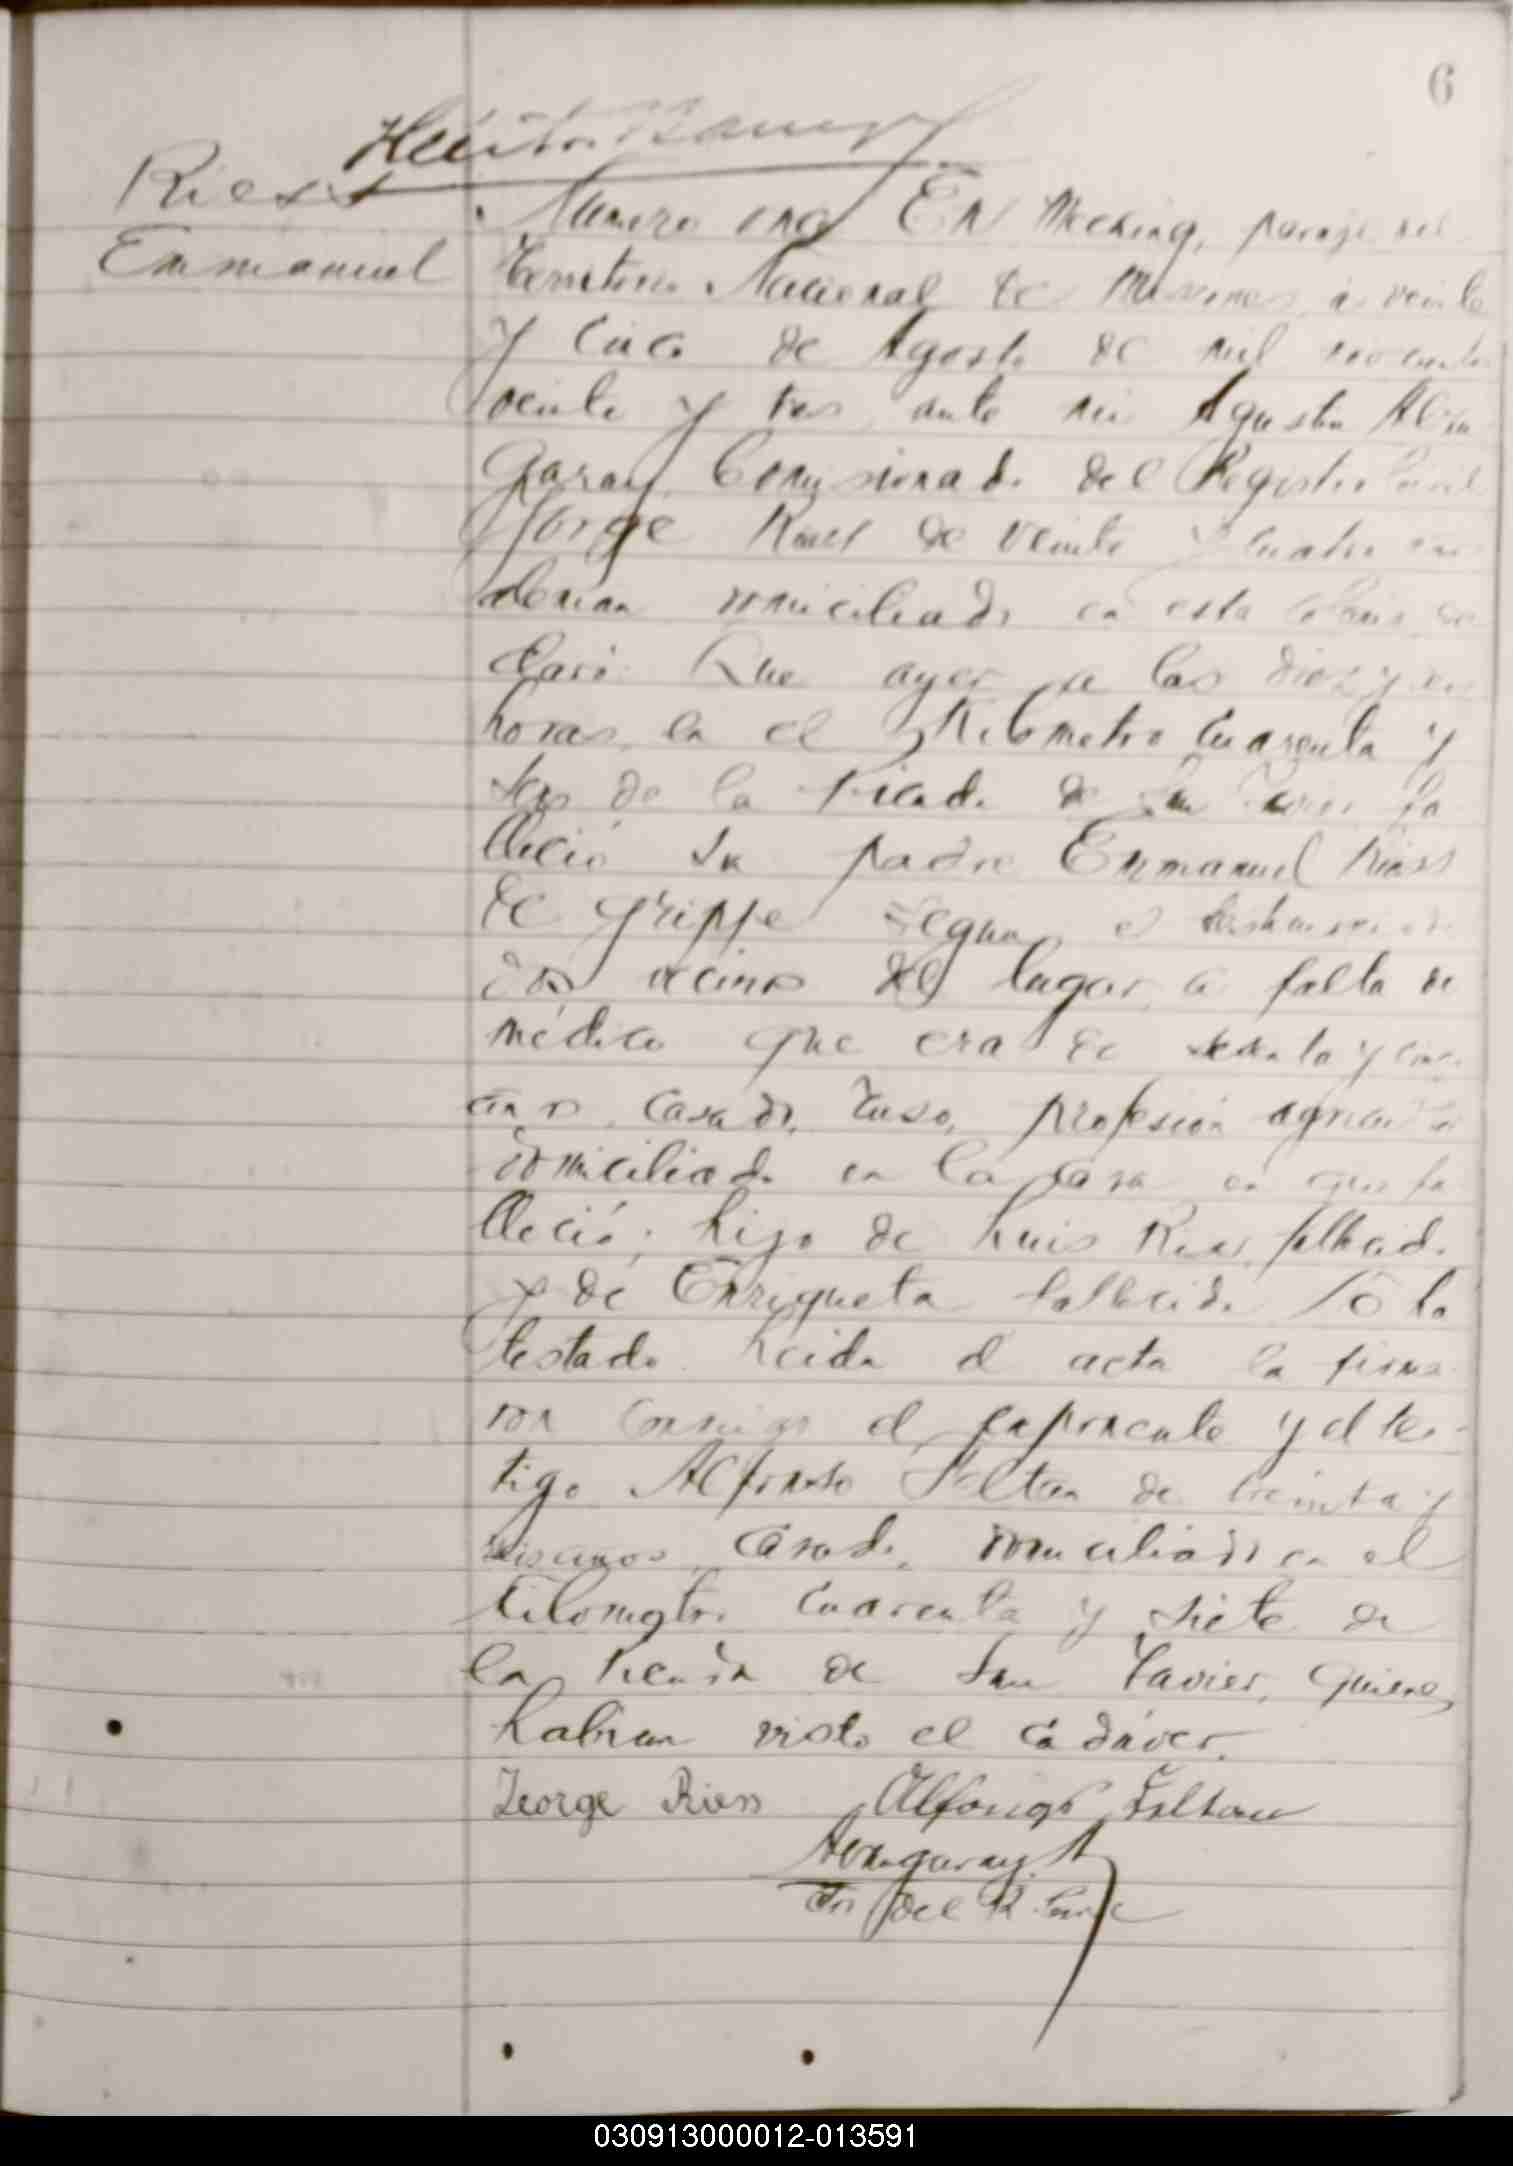 6
Héctor
Riess
Emmanuel
Numero once En Mecking, paraje del
Territorio Nacional de Misiones, a veinte
y cinco de Agosto de mil novecientos
veinte y tres, ante mi Agustin Alvin
garay, Comisionado del Registro Civil
Jorge Riess de veinte y cuatro años
aleman domiciliado en esta Colonia de
claró: Que ayer a las diez y seis
horas, en el Kilometro cuarenta y
seis de la Picada de San Javier fa
lleció su padre Emmanuel Riess
de grippe segun el testimonio de
dos vecinos del lugar, a falta de
médico que era de y cinco
años, casado, ruso, profesión agricultor
domiciliado en la casa en que fa
lleció; hijo de Luis Riess, fallecido
y de Enriqueta fallecida No ha
testado. Leida el acta la firma
ron conmigo el exponente y el tes-
tigo Alfonso de treinta y
seis años, casado, domiciliado en el
kilometro cuarenta y siete de
la Picada de San Javier, quienes
habian visto el cadáver.
George Riess Alfongs
Alvingaray A
del R. Civil
030913000012-013591